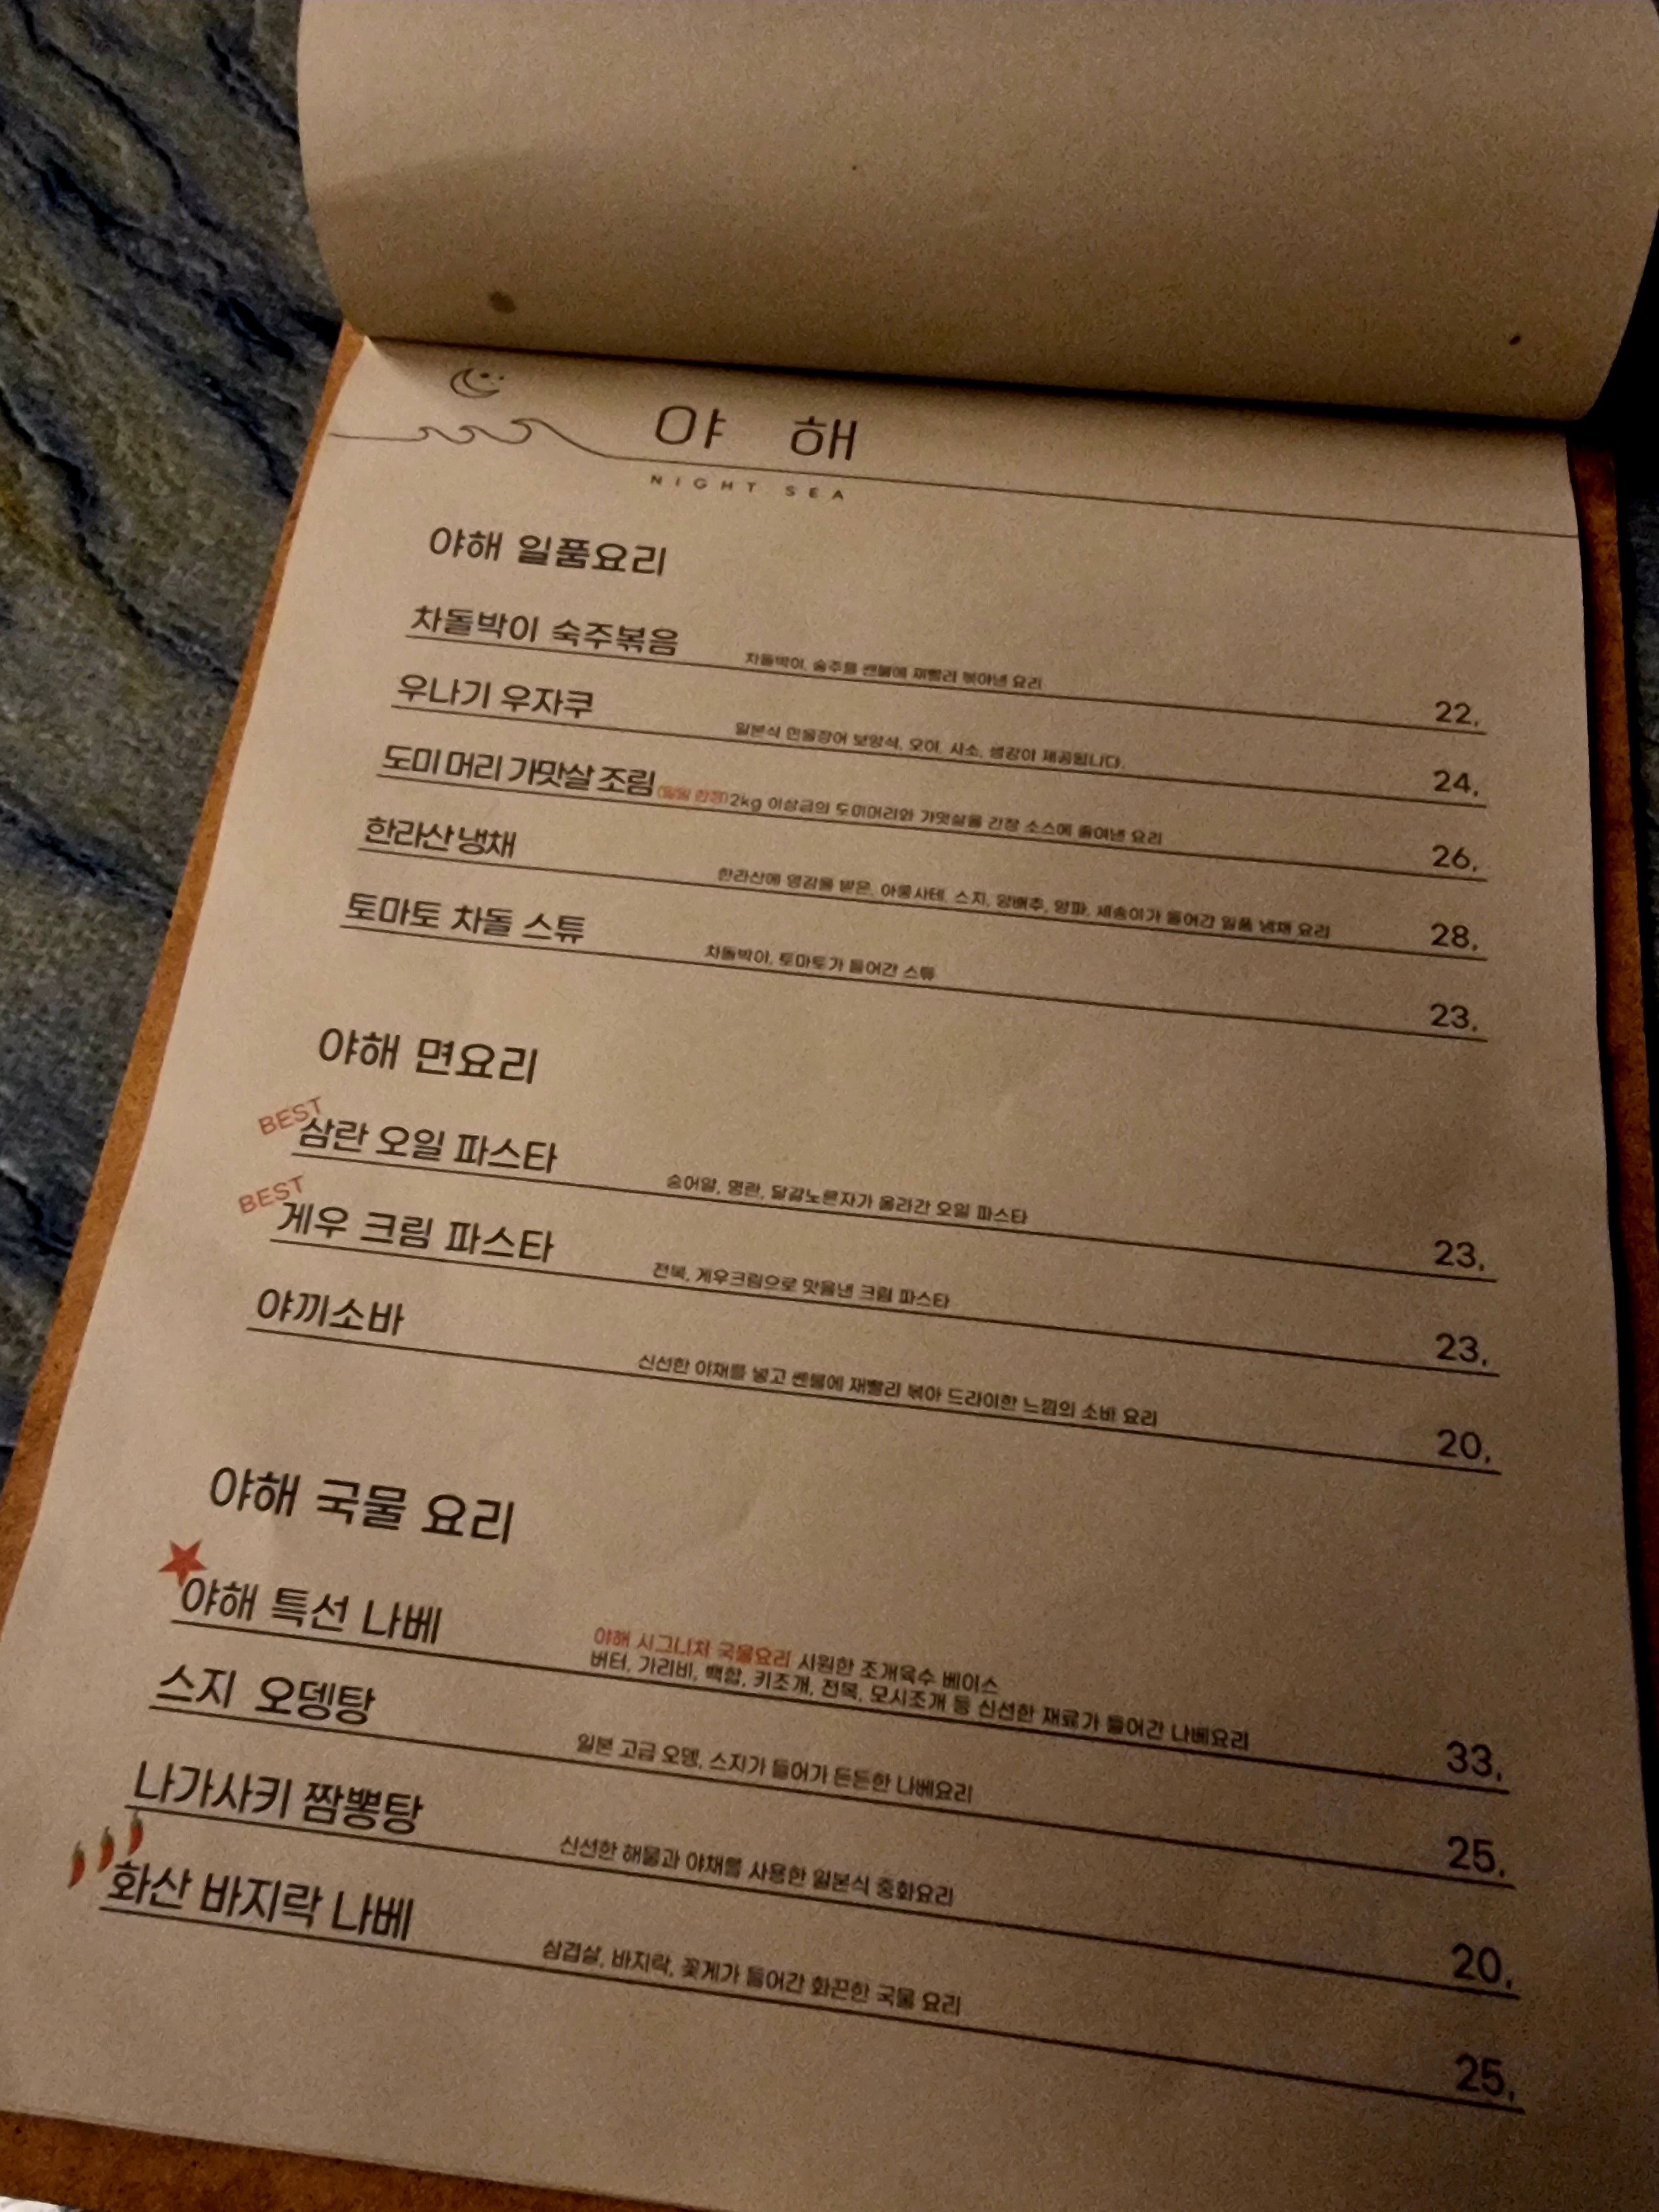 야 해
NIGHT SEA
야해 일품요리
차돌박이 숙주볶음 차돌박이, 숙주를 쎈불에 재빨리 볶아낸 요리 22,
우나기 우자쿠 일본식 민물장어 보양식, 오이, 시소, 생강이 제공됩니다. 24,
도미 머리 가맛살 조림 (일일 한정) 2kg 이상급의 도미머리와 가맛살을 간장 소스에 졸여낸 요리 26,
한라산 냉채 한라산에 영감을 받은, 아롱사태, 스지, 양배추, 양파, 새송이가 들어간 일품 냉채 요리 28,
토마토 차돌 스튜 차돌박이, 토마토가 들어간 스튜 23,
야해 면요리
BEST
삼란 오일 파스타 숭어알, 명란, 달걀노른자가 올라간 오일 파스타 23,
BEST
게우 크림 파스타 전복, 게우크림으로 맛을낸 크림 파스타 23,
야끼소바 신선한 야채를 넣고 쎈불에 재빨리 볶아 드라이한 느낌의 소바 요리 20,
야해 국물 요리
야해 특선 나베 야해 시그니처 국물요리 시원한 조개육수 베이스
버터, 가리비, 백합, 키조개, 전복, 모시조개 등 신선한 재료가 들어간 나베요리 33,
스지 오뎅탕 일본 고급 오뎅, 스지가 들어가 든든한 나베요리 25,
나가사키 짬뽕탕 신선한 해물과 야채를 사용한 일본식 중화요리 20,
화산 바지락 나베 삼겹살, 바지락, 꽃게가 들어간 화끈한 국물 요리 25,